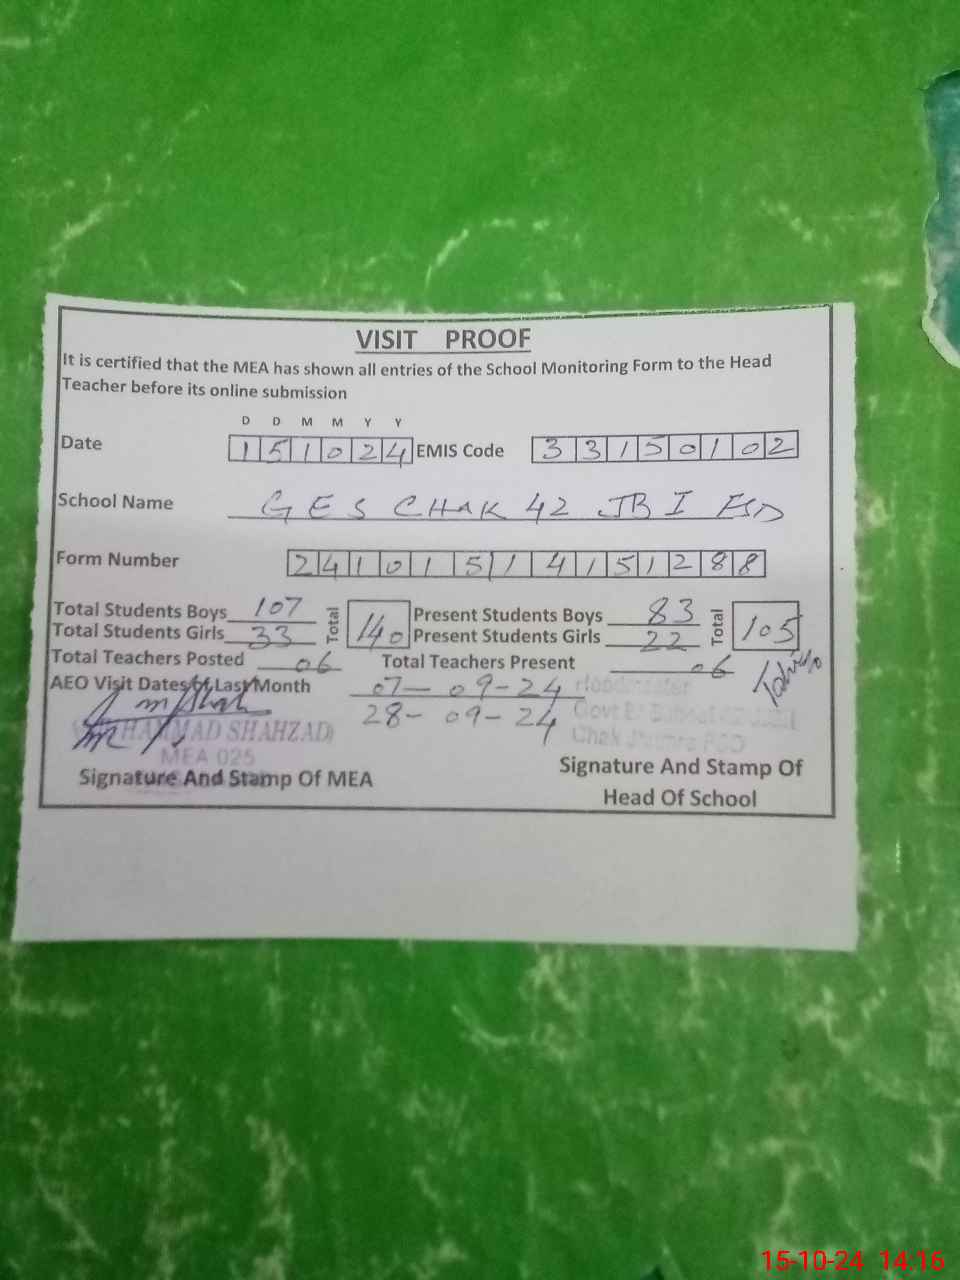 VISIT PROOF
It is certified that the MEA has shown all entries of the School Monitoring Form to the Head
Teacher before its online submission
D D M M Y Y
Date 151024 EMIS Code 33150102
School Name GES CHAK 42 JB I FSD
Form Number 24101514151288
Total Students Boys 107 Total 140 Present Students Boys 83 Total 105
Total Students Girls 33 Present Students Girls 22
Total Teachers Posted 06 Total Teachers Present 06
AEO Visit Dates of Last Month 07-09-24
28-09-24
SHAHZAD
MEA 025
Signature And Stamp Of MEA
Signature And Stamp Of
Head Of School
15-10-24 14:16